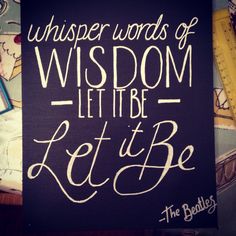 whisper words of
WISDOM
— LET IT BE —
Let it Be
-The Beatles